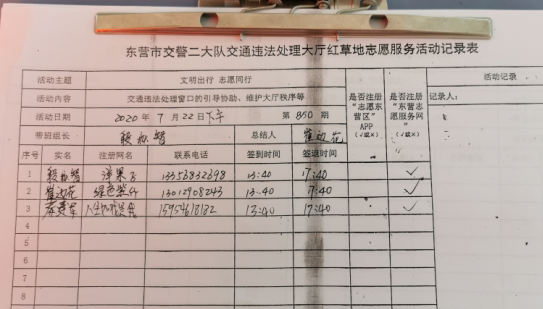 东营市交警二大队交通违法处理大厅红草地志愿服务活动记录表
活动主题 文明出行 志愿同行 活动记录
活动内容 交通违法处理窗口的引导协助、维护大厅秩序等 是否注册“志愿东营区”APP(√或×) 是否注册“东营志愿服务网”(√或×) 记录人:
活动日期 2020年7月22日下午 第850期
带班组长 总结人
序号 实名 注册网名 联系电话 签到时间 签退时间
1 13356832698 13:40 17:40 ✓
2 13012908243 13:40 17:40 ✓
3 15954618182 13:40 17:40 ✓
4
5
6
7
8